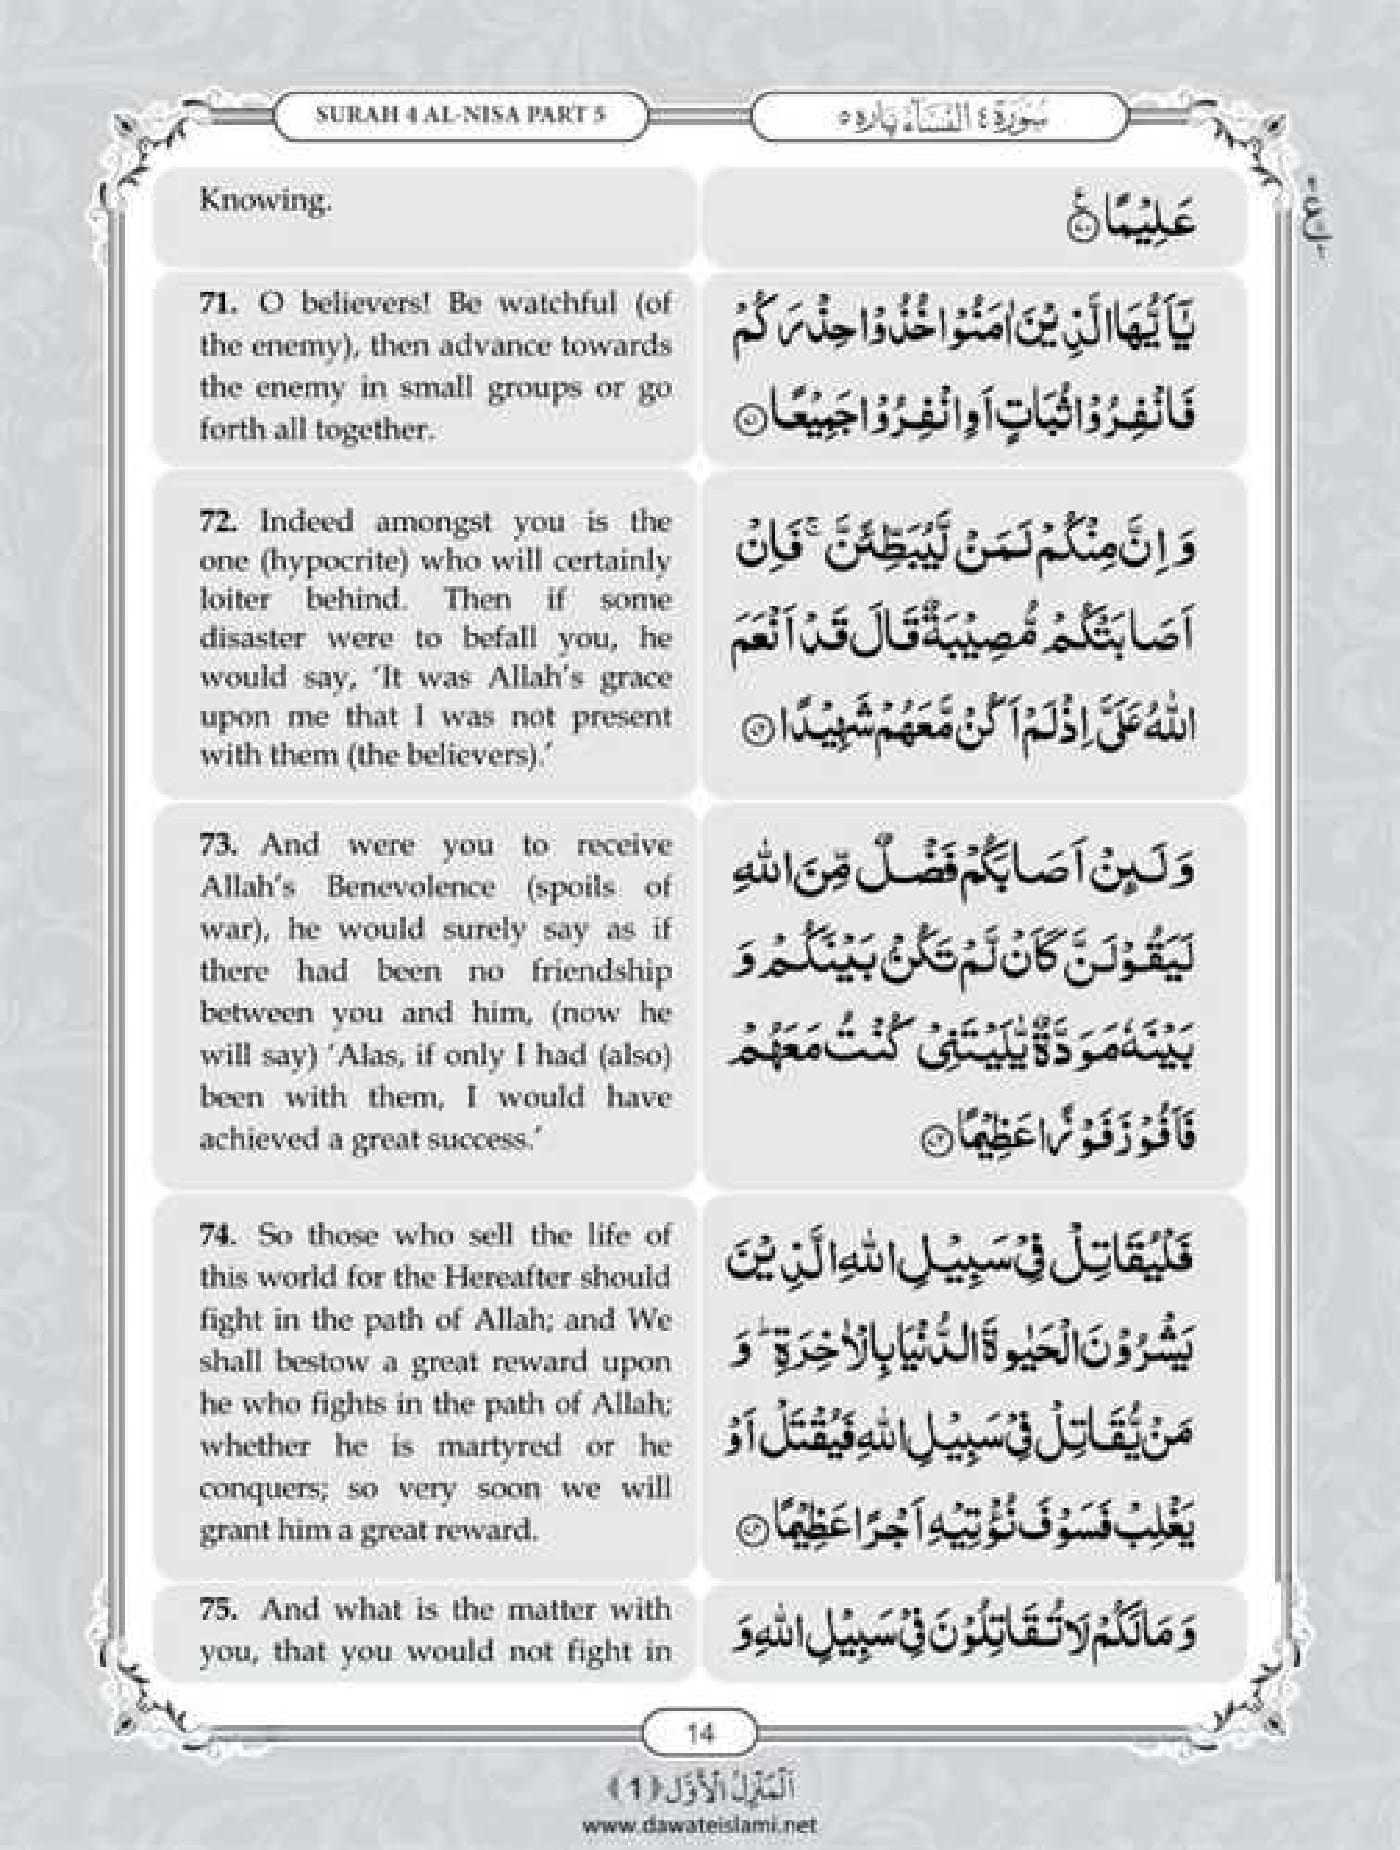 SURAH 4 AL-NISA PART 5
سُوْرَة ٤ النِّسَآء پاره ٥
Knowing.
عَلِيْمًا ۧ ﴿٧٠﴾
71. O believers! Be watchful (of
the enemy), then advance towards
the enemy in small groups or go
forth all together.
يٰۤاَيُّهَا الَّذِيْنَ اٰمَنُوْا خُذُوْا حِذْرَكُمْ
فَانْفِرُوْا ثُبَاتٍ اَوِ انْفِرُوْا جَمِيْعًا ﴿٧١﴾
72. Indeed amongst you is the
one (hypocrite) who will certainly
loiter behind. Then if some
disaster were to befall you, he
would say, ‘It was Allah’s grace
upon me that I was not present
with them (the believers).’
وَ اِنَّ مِنْكُمْ لَمَنْ لَّيُبَطِّئَنَّ ۚ فَاِنْ
اَصَابَتْكُمْ مُّصِيْبَةٌ قَالَ قَدْ اَنْعَمَ
اللّٰهُ عَلَيَّ اِذْ لَمْ اَكُنْ مَّعَهُمْ شَهِيْدًا ﴿٧٢﴾
73. And were you to receive
Allah’s Benevolence (spoils of
war), he would surely say as if
there had been no friendship
between you and him, (now he
will say) ‘Alas, if only I had (also)
been with them, I would have
achieved a great success.’
وَ لَىِٕنْ اَصَابَكُمْ فَضْلٌ مِّنَ اللّٰهِ
لَيَقُوْلَنَّ كَاَنْ لَّمْ تَكُنْۢ بَيْنَكُمْ وَ
بَيْنَهٗ مَوَدَّةٌ يّٰلَيْتَنِيْ كُنْتُ مَعَهُمْ
فَاَفُوْزَ فَوْزًا عَظِيْمًا ﴿٧٣﴾
74. So those who sell the life of
this world for the Hereafter should
fight in the path of Allah; and We
shall bestow a great reward upon
he who fights in the path of Allah;
whether he is martyred or he
conquers; so very soon we will
grant him a great reward.
فَلْيُقَاتِلْ فِيْ سَبِيْلِ اللّٰهِ الَّذِيْنَ
يَشْرُوْنَ الْحَيٰوةَ الدُّنْيَا بِالْاٰخِرَةِ ؕ وَ
مَنْ يُّقَاتِلْ فِيْ سَبِيْلِ اللّٰهِ فَيُقْتَلْ اَوْ
يَغْلِبْ فَسَوْفَ نُؤْتِيْهِ اَجْرًا عَظِيْمًا ﴿٧٤﴾
75. And what is the matter with
you, that you would not fight in
وَ مَا لَكُمْ لَا تُقَاتِلُوْنَ فِيْ سَبِيْلِ اللّٰهِ وَ
14
اَلْمَنْزِلُ الْاَوَّل ﴿1﴾
www.dawateislami.net